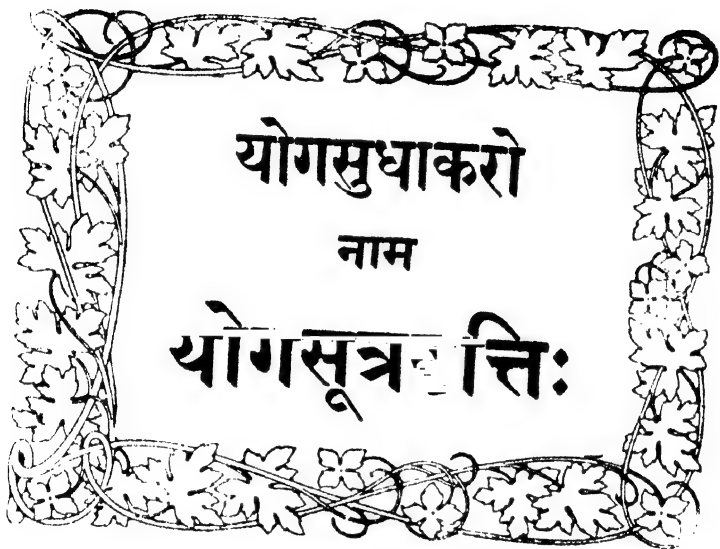 योगसुधाकरो
नाम
योगसूत्रवृत्तिः